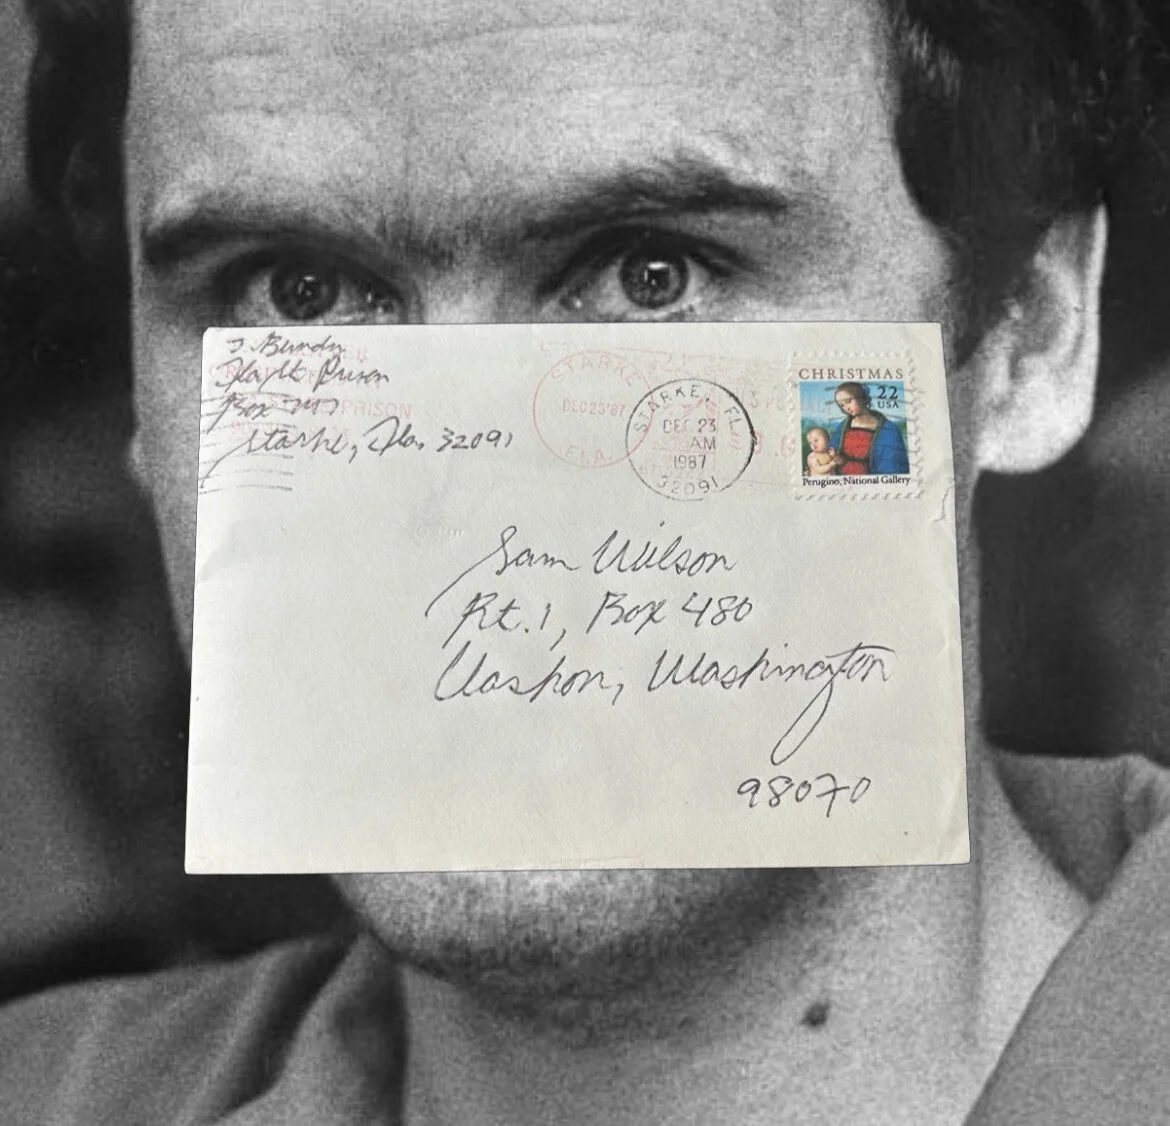 T. Bundy
Fla. St. Prison
Box 747
PRISON
Starke, Fla. 32091
STARKE
DEC 23 '87
FLA.
STARKE, FL
DEC 23
AM
1987
32091
CHRISTMAS
22
USA
Perugino, National Gallery
Sam Wilson
Rt. 1, Box 480
Vashon, Washington
98070